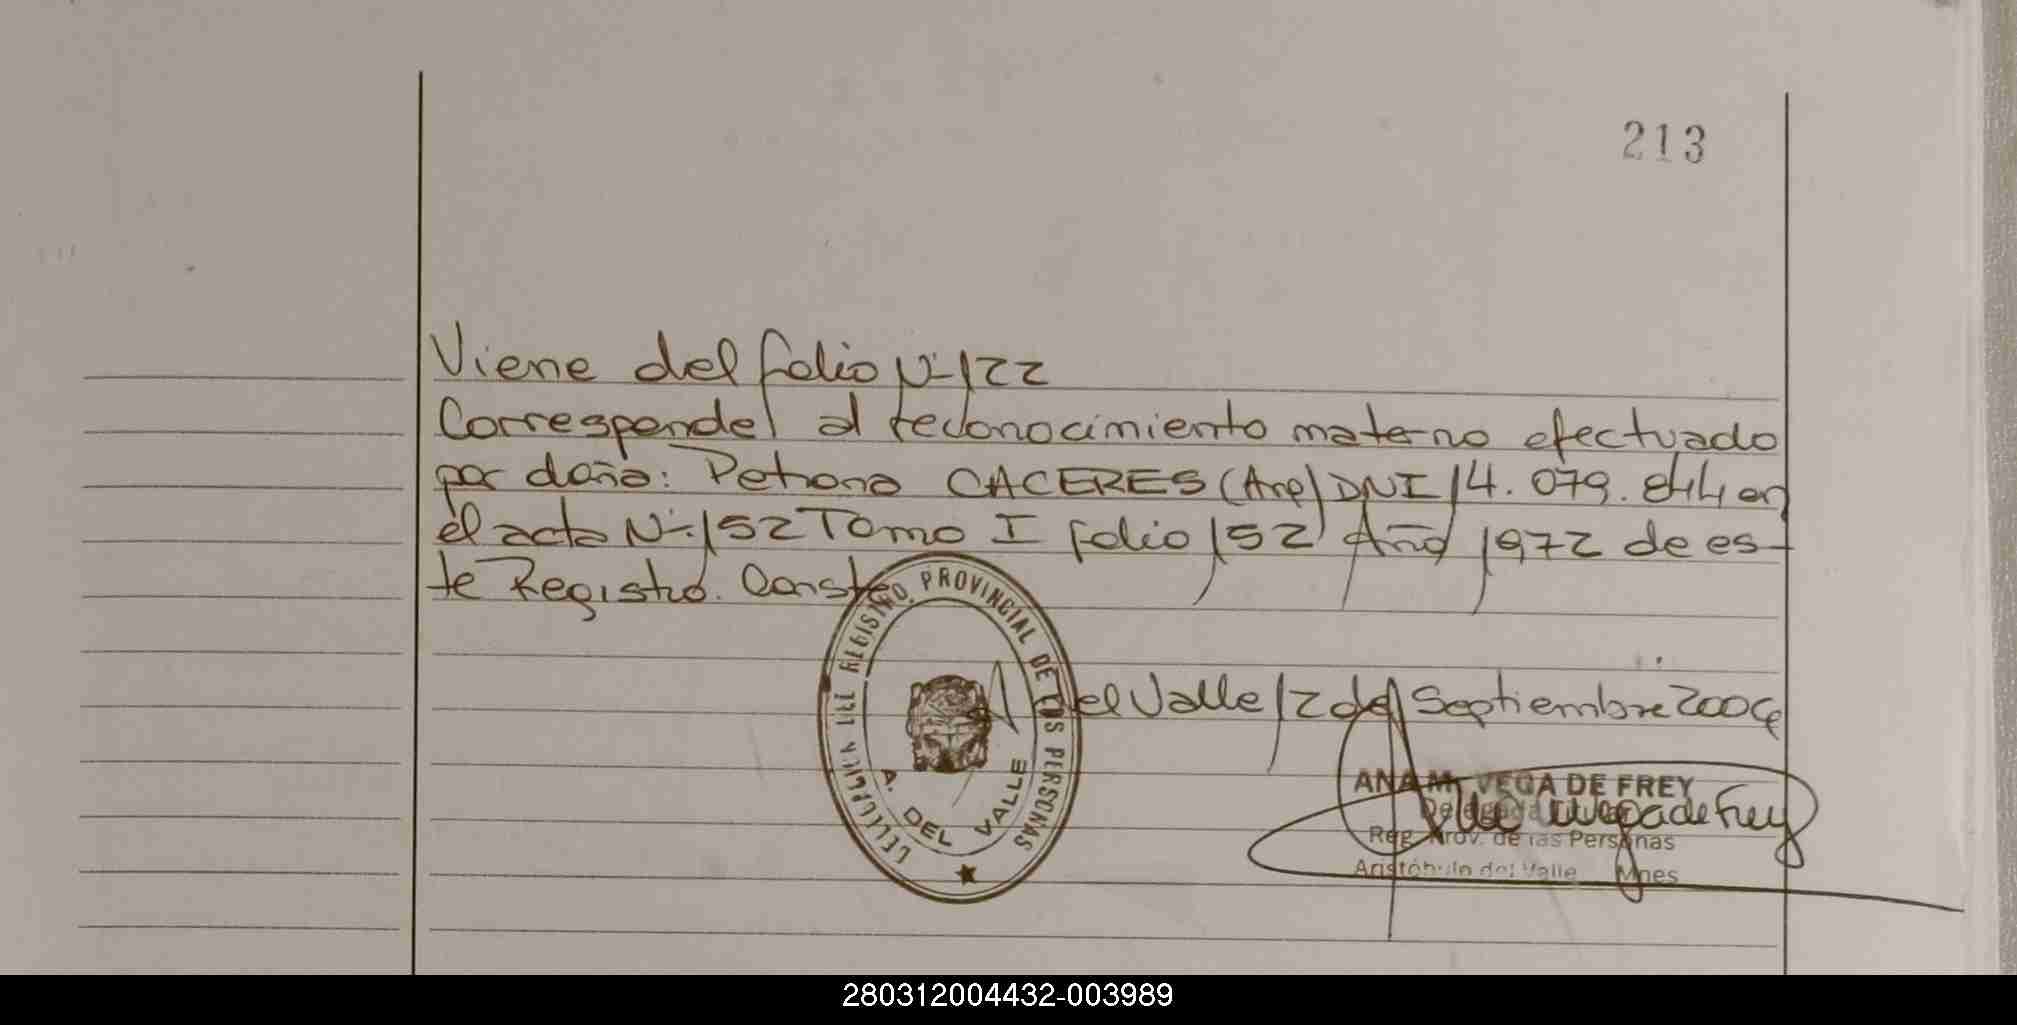 213
Viene del folio Nº 122
Corresponde al reconocimiento materno efectuado
por doña: Petrona CACERES (Arg) DNI 14.079.844 en
el acta Nº 152 Tomo I folio 152 Año 1972 de es-
te Registro. Conste
REGISTRO PROVINCIAL DE LAS PERSONAS
A. DEL VALLE
A del Valle 12 de Septiembre 2006
ANA M. VEGA DE FREY
Delegada
Reg. Prov. de las Personas
Aristóbulo del Valle Mnes
Vega de Frey
280312004432-003989